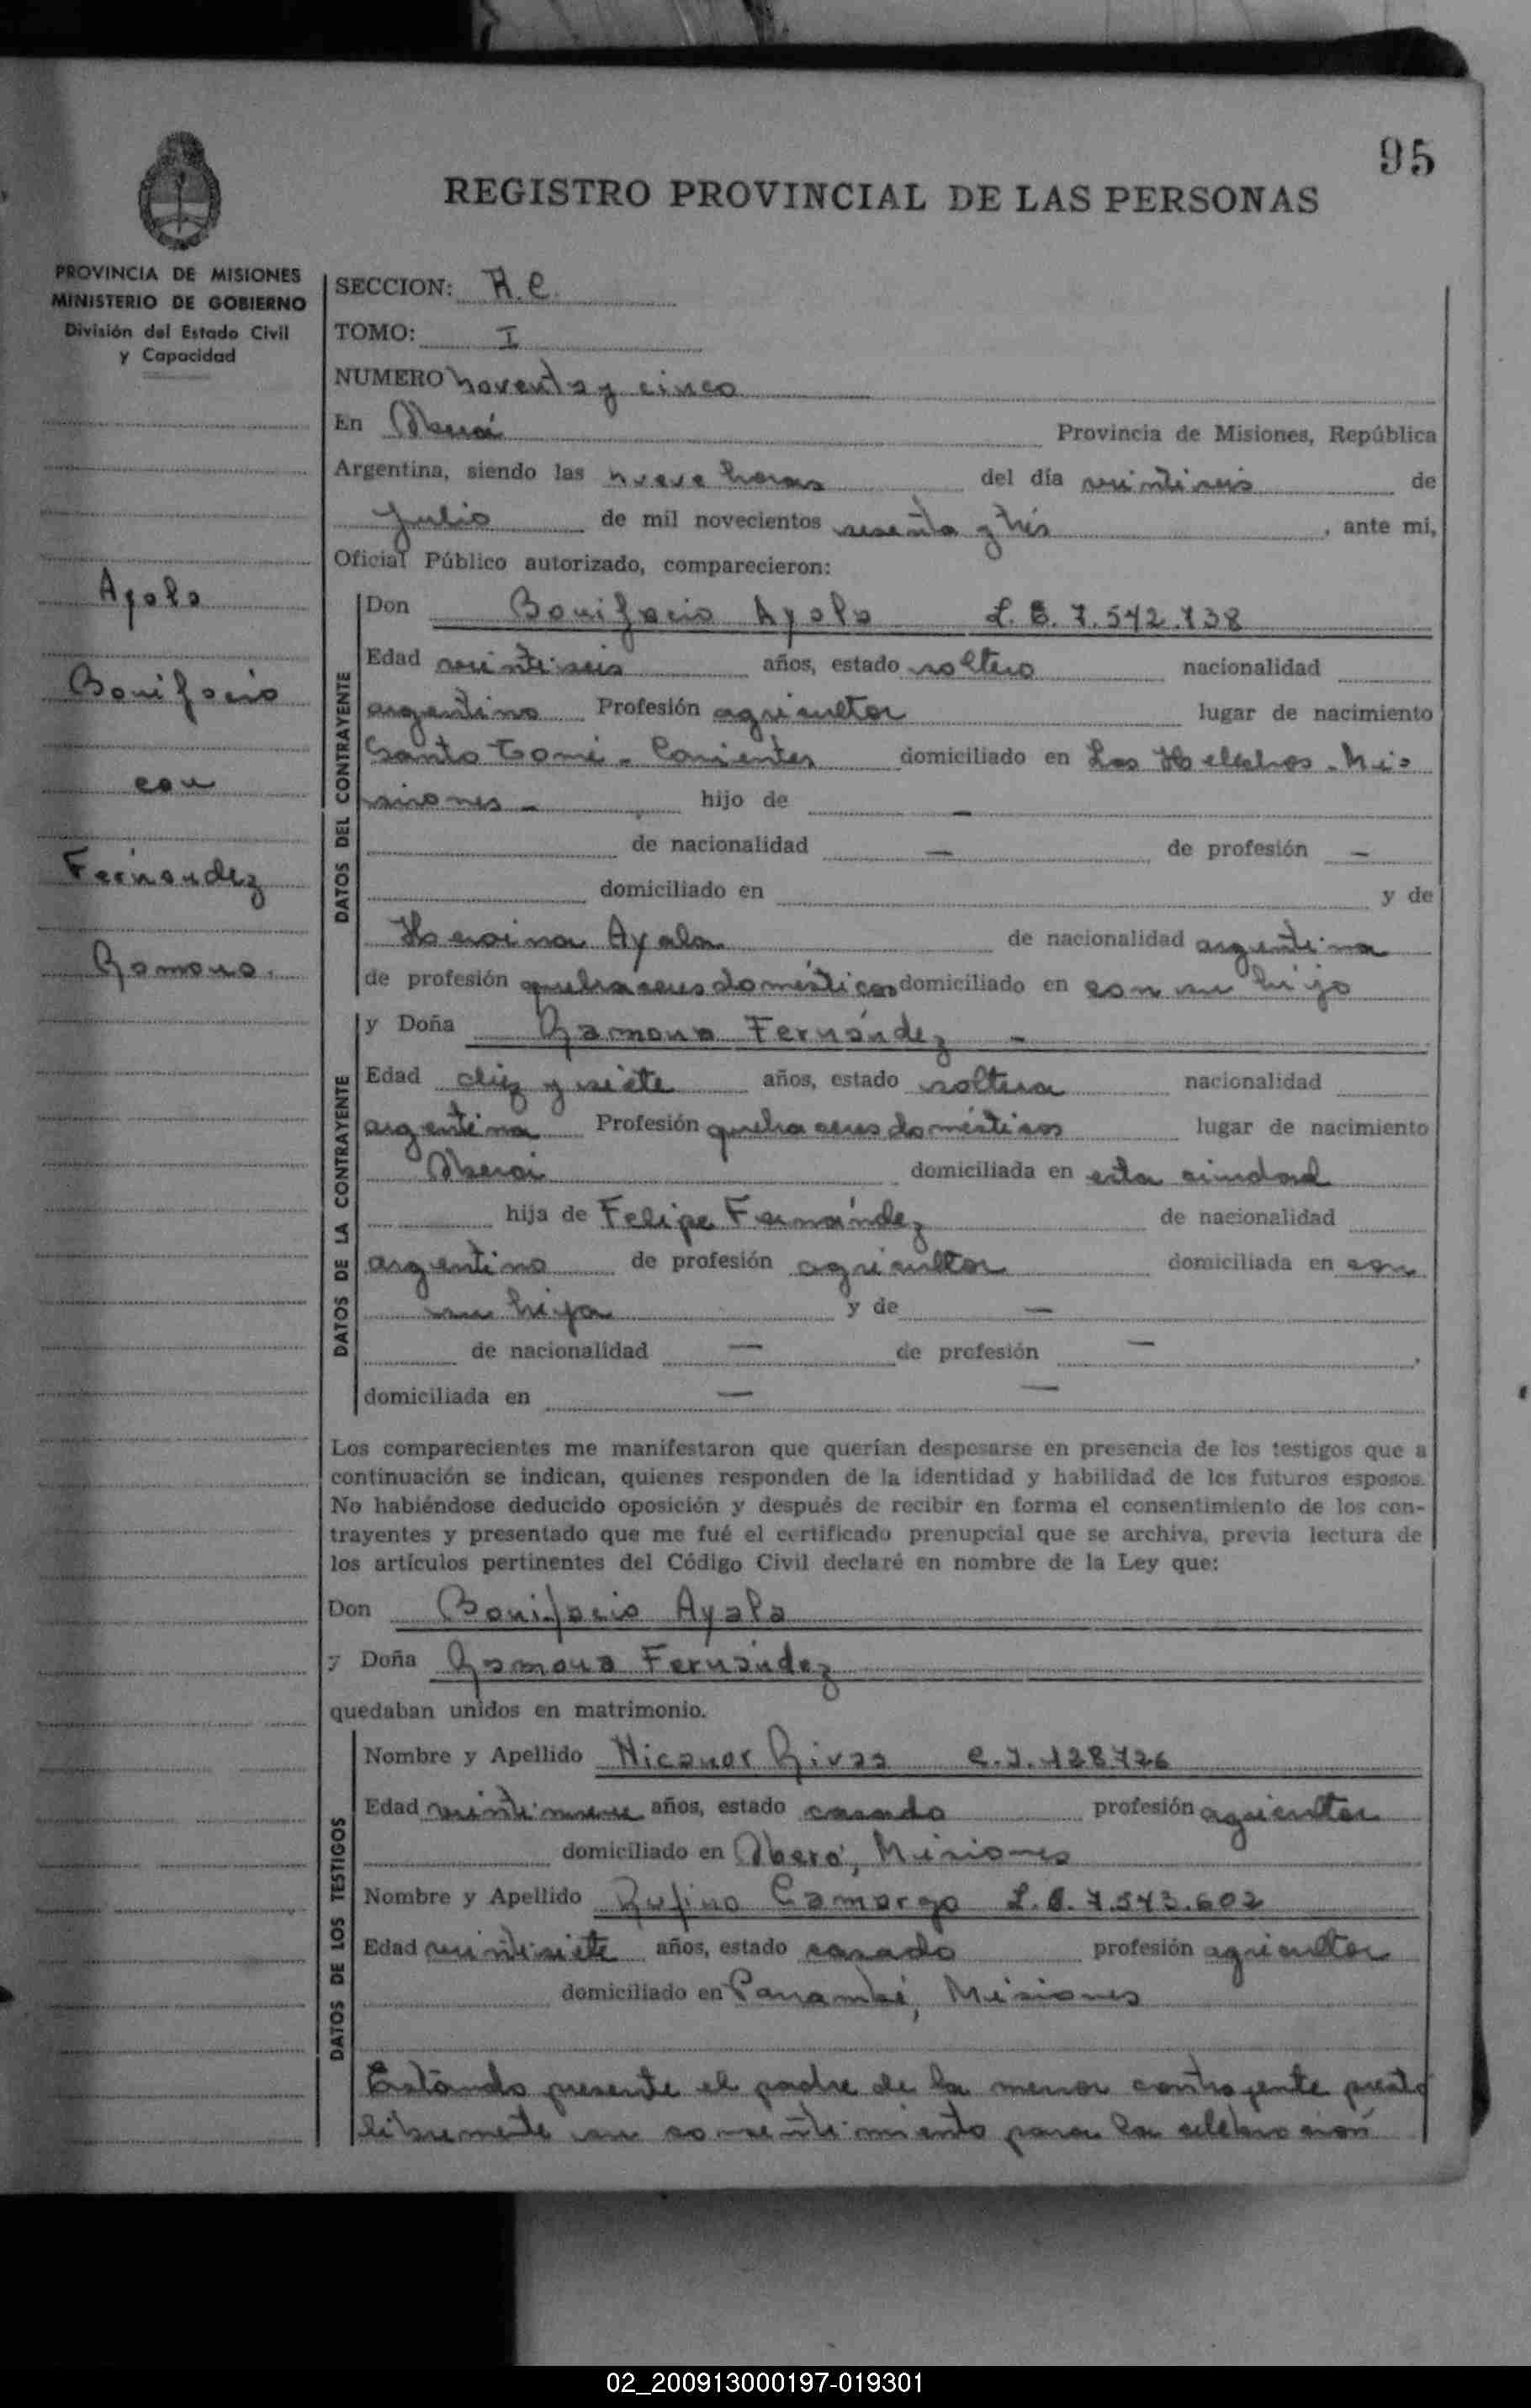 95
REGISTRO PROVINCIAL DE LAS PERSONAS
PROVINCIA DE MISIONES
MINISTERIO DE GOBIERNO
División del Estado Civil
y Capacidad
Ayala
Bonifacio
con
Fernández
Ramona.
SECCION: R.C.
TOMO: I
NUMERO noventa y cinco
En Oberá Provincia de Misiones, República
Argentina, siendo las nueve horas del día veintiseis de
Julio de mil novecientos sesenta y trés, ante mí,
Oficial Público autorizado, comparecieron:
DATOS DEL CONTRAYENTE
Don Bonifacio Ayala L.E. 7.542.738
Edad veintiseis años, estado soltero nacionalidad
argentino Profesión agricultor lugar de nacimiento
Santo Tomé - Corrientes domiciliado en Los Helechos - Mi-
siones - hijo de —
de nacionalidad — de profesión —
domiciliado en y de
Heroina Ayala de nacionalidad argentina
de profesión quehaceres domésticos domiciliado en con su hijo
DATOS DE LA CONTRAYENTE
y Doña Ramona Fernández -
Edad diez y siete años, estado soltera nacionalidad
argentina Profesión quehaceres domésticos lugar de nacimiento
Oberá domiciliada en esta ciudad
hija de Felipe Fernández de nacionalidad
argentino de profesión agricultor domiciliada en con
su hija y de —
de nacionalidad — de profesión —,
domiciliada en — —
Los comparecientes me manifestaron que querían desposarse en presencia de los testigos que a
continuación se indican, quienes responden de la identidad y habilidad de los futuros esposos.
No habiéndose deducido oposición y después de recibir en forma el consentimiento de los con-
trayentes y presentado que me fué el certificado prenupcial que se archiva, previa lectura de
los artículos pertinentes del Código Civil declaré en nombre de la Ley que:
Don Bonifacio Ayala
y Doña Ramona Fernández
quedaban unidos en matrimonio.
DATOS DE LOS TESTIGOS
Nombre y Apellido Nicanor Rivas C.I. 128726
Edad veintinueve años, estado casado profesión agricultor
domiciliado en Oberá, Misiones
Nombre y Apellido Rufino Camargo L.E. 7.543.602
Edad veintisiete años, estado casado profesión agricultor
domiciliado en Panambí, Misiones
Estando presente el padre de la menor contrayente prestó
libremente su consentimiento para la celebración
02_200913000197-019301